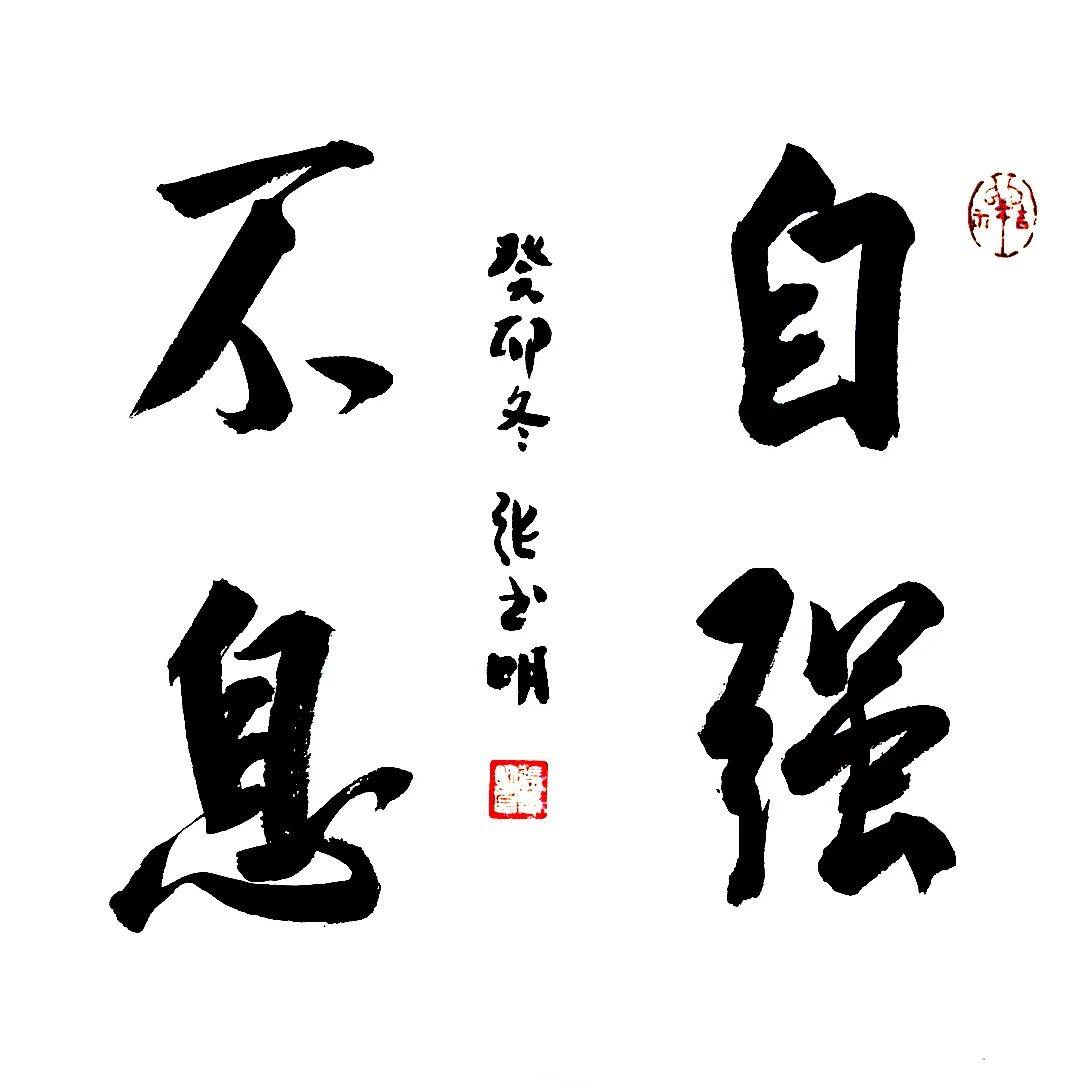 自强
不息
癸卯冬 张书明